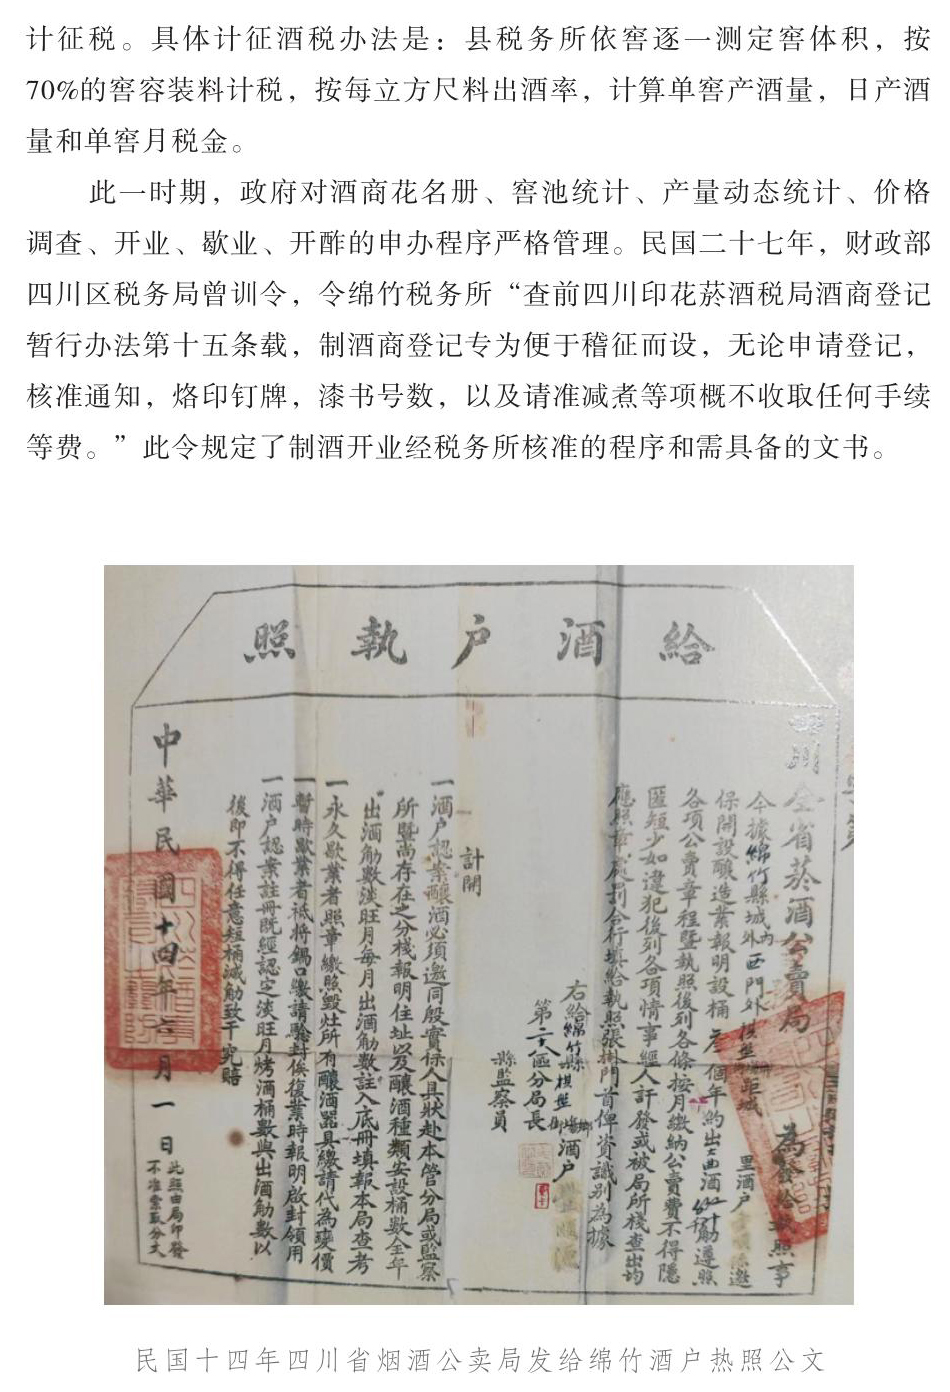 计征税。具体计征酒税办法是：县税务所依窖逐一测定窖体积，按
70%的窖容装料计税，按每立方尺料出酒率，计算单窖产酒量，日产酒
量和单窖月税金。
此一时期，政府对酒商花名册、窖池统计、产量动态统计、价格
调查、开业、歇业、开酢的申办程序严格管理。民国二十七年，财政部
四川区税务局曾训令，令绵竹税务所“查前四川印花菸酒税局酒商登记
暂行办法第十五条载，制酒商登记专为便于稽征而设，无论申请登记，
核准通知，烙印钉牌，漆书号数，以及请准减煮等项概不收取任何手续
等费。”此令规定了制酒开业经税务所核准的程序和需具备的文书。
照執户酒給
川全省菸酒公賣局 為發給執照事
今據綿竹縣城内外西門外 距城 里酒户
保開設釀造業報明設桶 叁個年約出大曲酒 觔遵照
各項公賣章程暨執照後列各條按月繳納公賣費不得隱
匿短少如違犯後列各項情事經人訐發或被局所棧查出均
應照章處罰合行填給執照張掛門首俾資識别為據
右給綿竹縣 酒户
第二十八區分局長
縣監察員
計開
一酒户認案釀酒必須邀同殷實保人具狀赴本管分局或監察
所暨尚存在之分棧報明住址以及釀酒種類安設桶數全年
出酒觔數淡旺月每月出酒觔數註入底冊填報本局查考
一永久歇業者照章繳照毀灶所有釀酒器具繳請代為變價
一暫時歇業者祗將鍋口繳請驗封俟復業時報明啟封領用
一酒户認案註冊既經認定淡旺月烤酒桶數與出酒觔數以
後即不得任意短桶減觔致干究賠
中華民國十四年六月一日
此照由局印發
不准索取分文
民国十四年四川省烟酒公卖局发给绵竹酒户热照公文